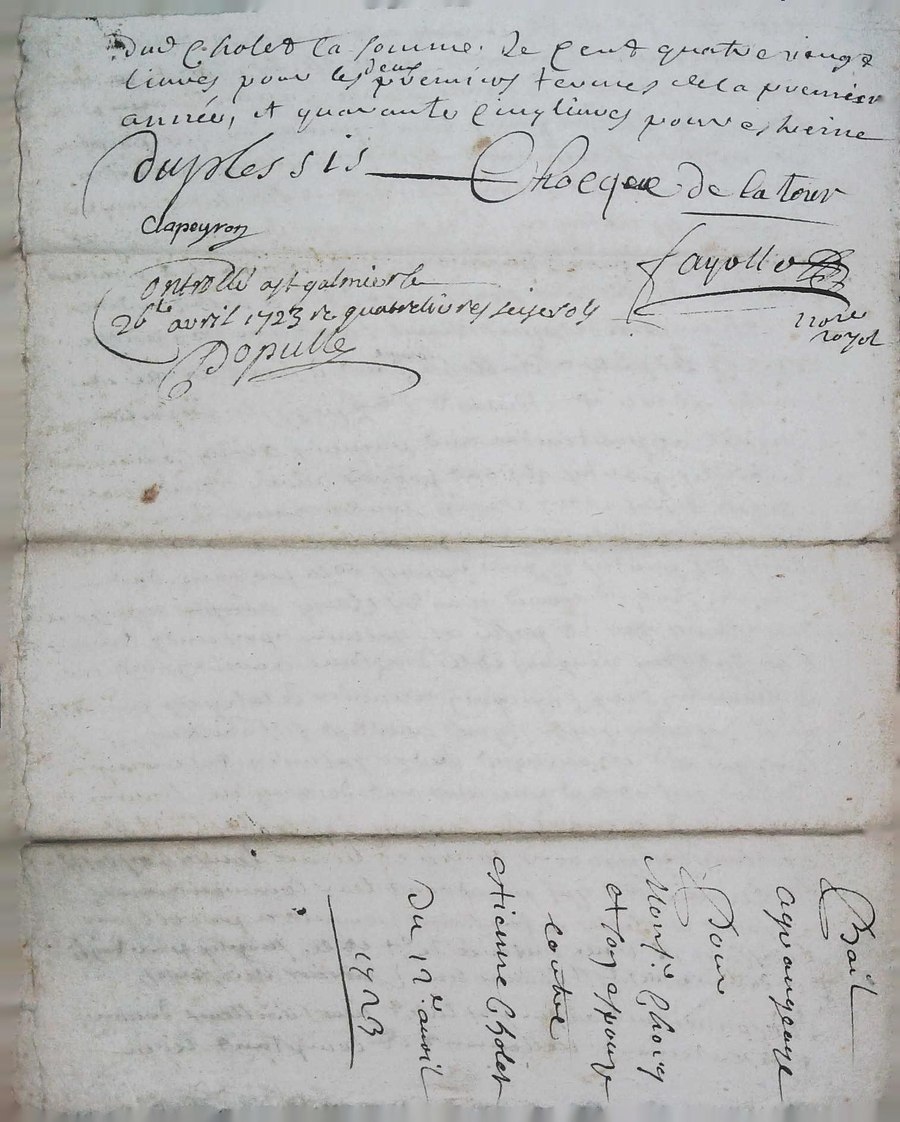 dud Cholet la somme de cent quatre vingt
livres pour les deux premiers termes de la premiere
année, et quarante cinq livres pour
duplessis Chocque de la tour
Clapeyron
fayolle
nore
royal
Controllé a st galmier le
26te avril 1723 re quatre livres seize sols
Dopulle
Bail
a grangeage
Pour
Monsr Chocq
et
contre
etienne Cholet
Du 12e avril
1723